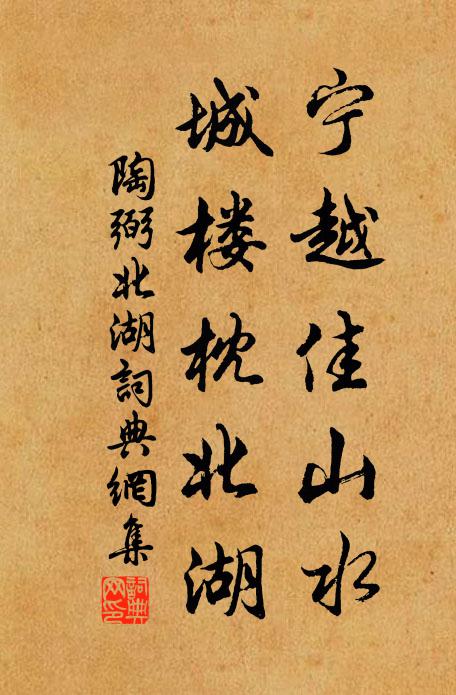 宁越佳山水
城楼枕北湖
陶弼北湖詞典網集
詞典网印